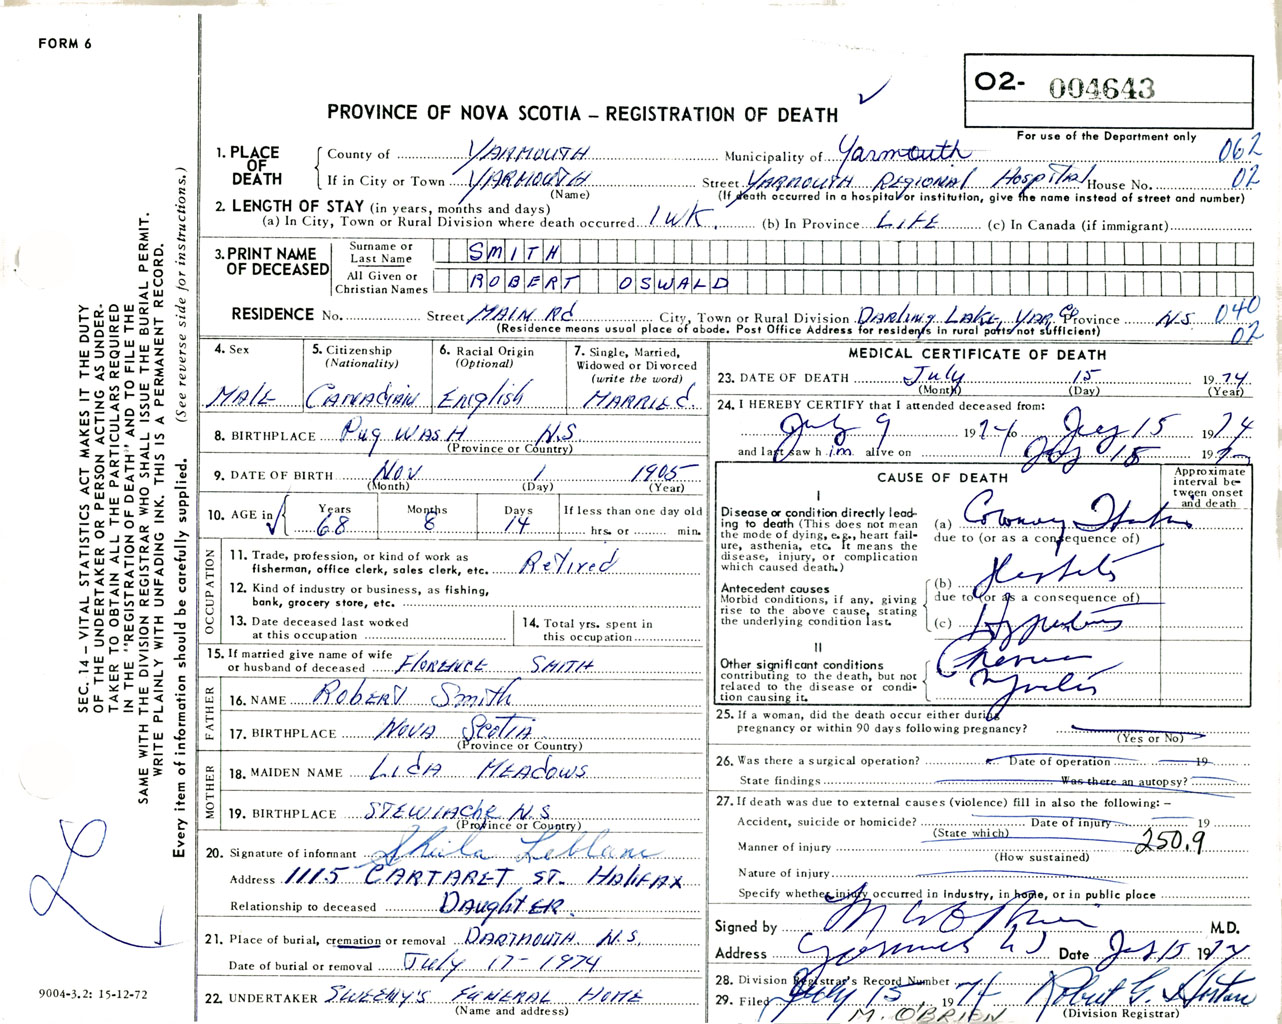 FORM 6
O2- 004643
PROVINCE OF NOVA SCOTIA – REGISTRATION OF DEATH
For use of the Department only
1. PLACE OF DEATH
County of YARMOUTH Municipality of Yarmouth 062
If in City or Town YARMOUTH Street YARMOUTH REGIONAL HOSPITAL House No. 02
(Name) (If death occurred in a hospital or institution, give the name instead of street and number)
2. LENGTH OF STAY (in years, months and days)
(a) In City, Town or Rural Division where death occurred 1 WK. (b) In Province LIFE (c) In Canada (if immigrant)
3. PRINT NAME OF DECEASED
Surname or Last Name SMITH
All Given or Christian Names ROBERT OSWALD
RESIDENCE No. Street MAIN Rd City, Town or Rural Division DARLING LAKE, YAR. Co Province N.S. 040
(Residence means usual place of abode. Post Office Address for residents in rural parts not sufficient) 02
4. Sex MALE
5. Citizenship (Nationality) CANADIAN
6. Racial Origin (Optional) English
7. Single, Married, Widowed or Divorced (write the word) MARRIEd
8. BIRTHPLACE PUGWASH N.S.
(Province or Country)
9. DATE OF BIRTH NOV 1 1905
(Month) (Day) (Year)
10. AGE in Years 68 Months 8 Days 14 If less than one day old hrs. or min.
OCCUPATION
11. Trade, profession, or kind of work as fisherman, office clerk, sales clerk, etc. Retired
12. Kind of industry or business, as fishing, bank, grocery store, etc.
13. Date deceased last worked at this occupation
14. Total yrs. spent in this occupation
15. If married give name of wife or husband of deceased FLORENCE SMITH
FATHER
16. NAME ROBERT Smith
17. BIRTHPLACE NOVA SCOTIA
(Province or Country)
MOTHER
18. MAIDEN NAME LIDA MEADOWS
19. BIRTHPLACE STEWIACKE N.S.
(Province or Country)
20. Signature of informant Sheila Leblanc
Address 1115 CARTARET ST. HALIFAX
Relationship to deceased DAUGHTER.
21. Place of burial, cremation or removal DARTMOUTH N.S.
Date of burial or removal July 17 - 1974
22. UNDERTAKER SWEENY'S FUNERAL HOME
(Name and address)
MEDICAL CERTIFICATE OF DEATH
23. DATE OF DEATH July 15 1974
(Month) (Day) (Year)
24. I HEREBY CERTIFY that I attended deceased from:
July 9 1974 to July 15 1974
and last saw him alive on July 15 197
CAUSE OF DEATH
Approximate interval between onset and death
I
Disease or condition directly leading to death (This does not mean the mode of dying, e.g., heart failure, asthenia, etc. It means the disease, injury, or complication which caused death.)
(a) Coronary
due to (or as a consequence of)
Antecedent causes
Morbid conditions, if any, giving rise to the above cause, stating the underlying condition last.
(b)
due to (or as a consequence of)
(c)
II
Other significant conditions contributing to the death, but not related to the disease or condition causing it.
25. If a woman, did the death occur either during pregnancy or within 90 days following pregnancy?
(Yes or No)
26. Was there a surgical operation? Date of operation 19
State findings Was there an autopsy?
27. If death was due to external causes (violence) fill in also the following: –
Accident, suicide or homicide? Date of injury 19
(State which)
Manner of injury 250.9
(How sustained)
Nature of injury
Specify whether injury occurred in Industry, in home, or in public place
Signed by M.D.
Address Date July 15 1974
28. Division Registrar's Record Number
29. Filed July 15, 1974 Robert G. Horton
M. O'BRIEN (Division Registrar)
SEC. 14 – VITAL STATISTICS ACT MAKES IT THE DUTY
OF THE UNDERTAKER OR PERSON ACTING AS UNDER-
TAKER TO OBTAIN ALL THE PARTICULARS REQUIRED
IN THE "REGISTRATION OF DEATH" AND TO FILE THE
SAME WITH THE DIVISION REGISTRAR WHO SHALL ISSUE THE BURIAL PERMIT.
WRITE PLAINLY WITH UNFADING INK. THIS IS A PERMANENT RECORD.
Every item of information should be carefully supplied. (See reverse side for instructions.)
9004-3.2: 15-12-72